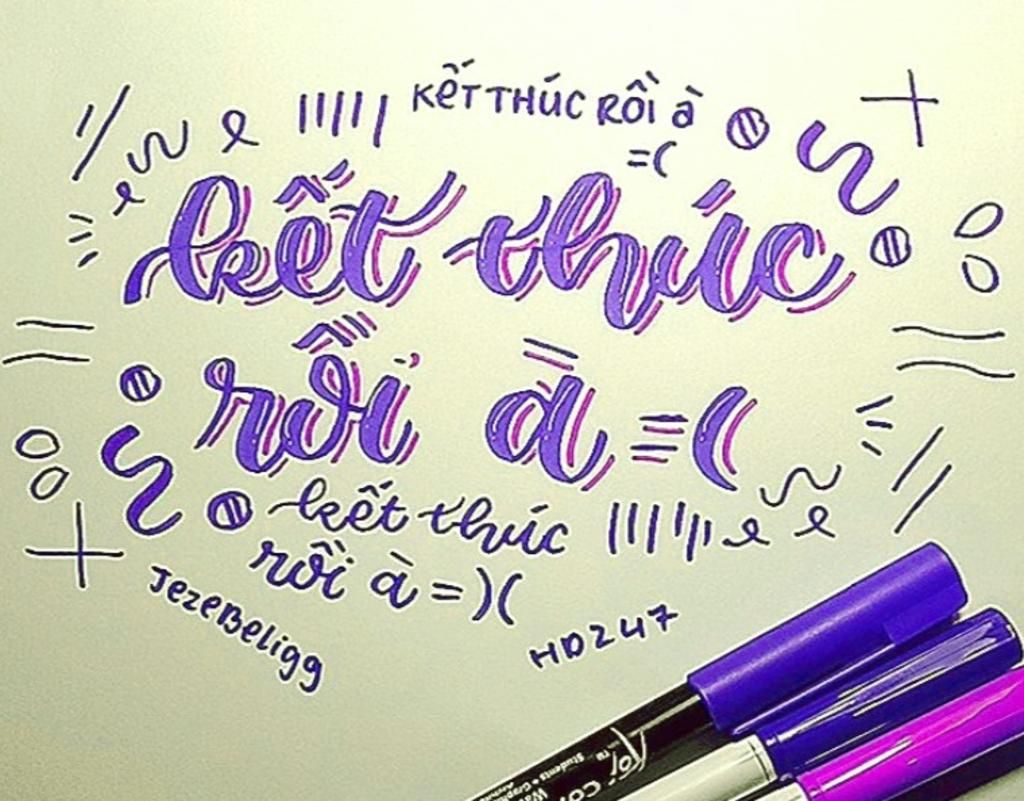 KẾT THÚC RỒI À
=(
kết thúc
rồi à =(
kết thúc
rồi à =)(
JEZEBELIGG
HD247
Students • Graphic